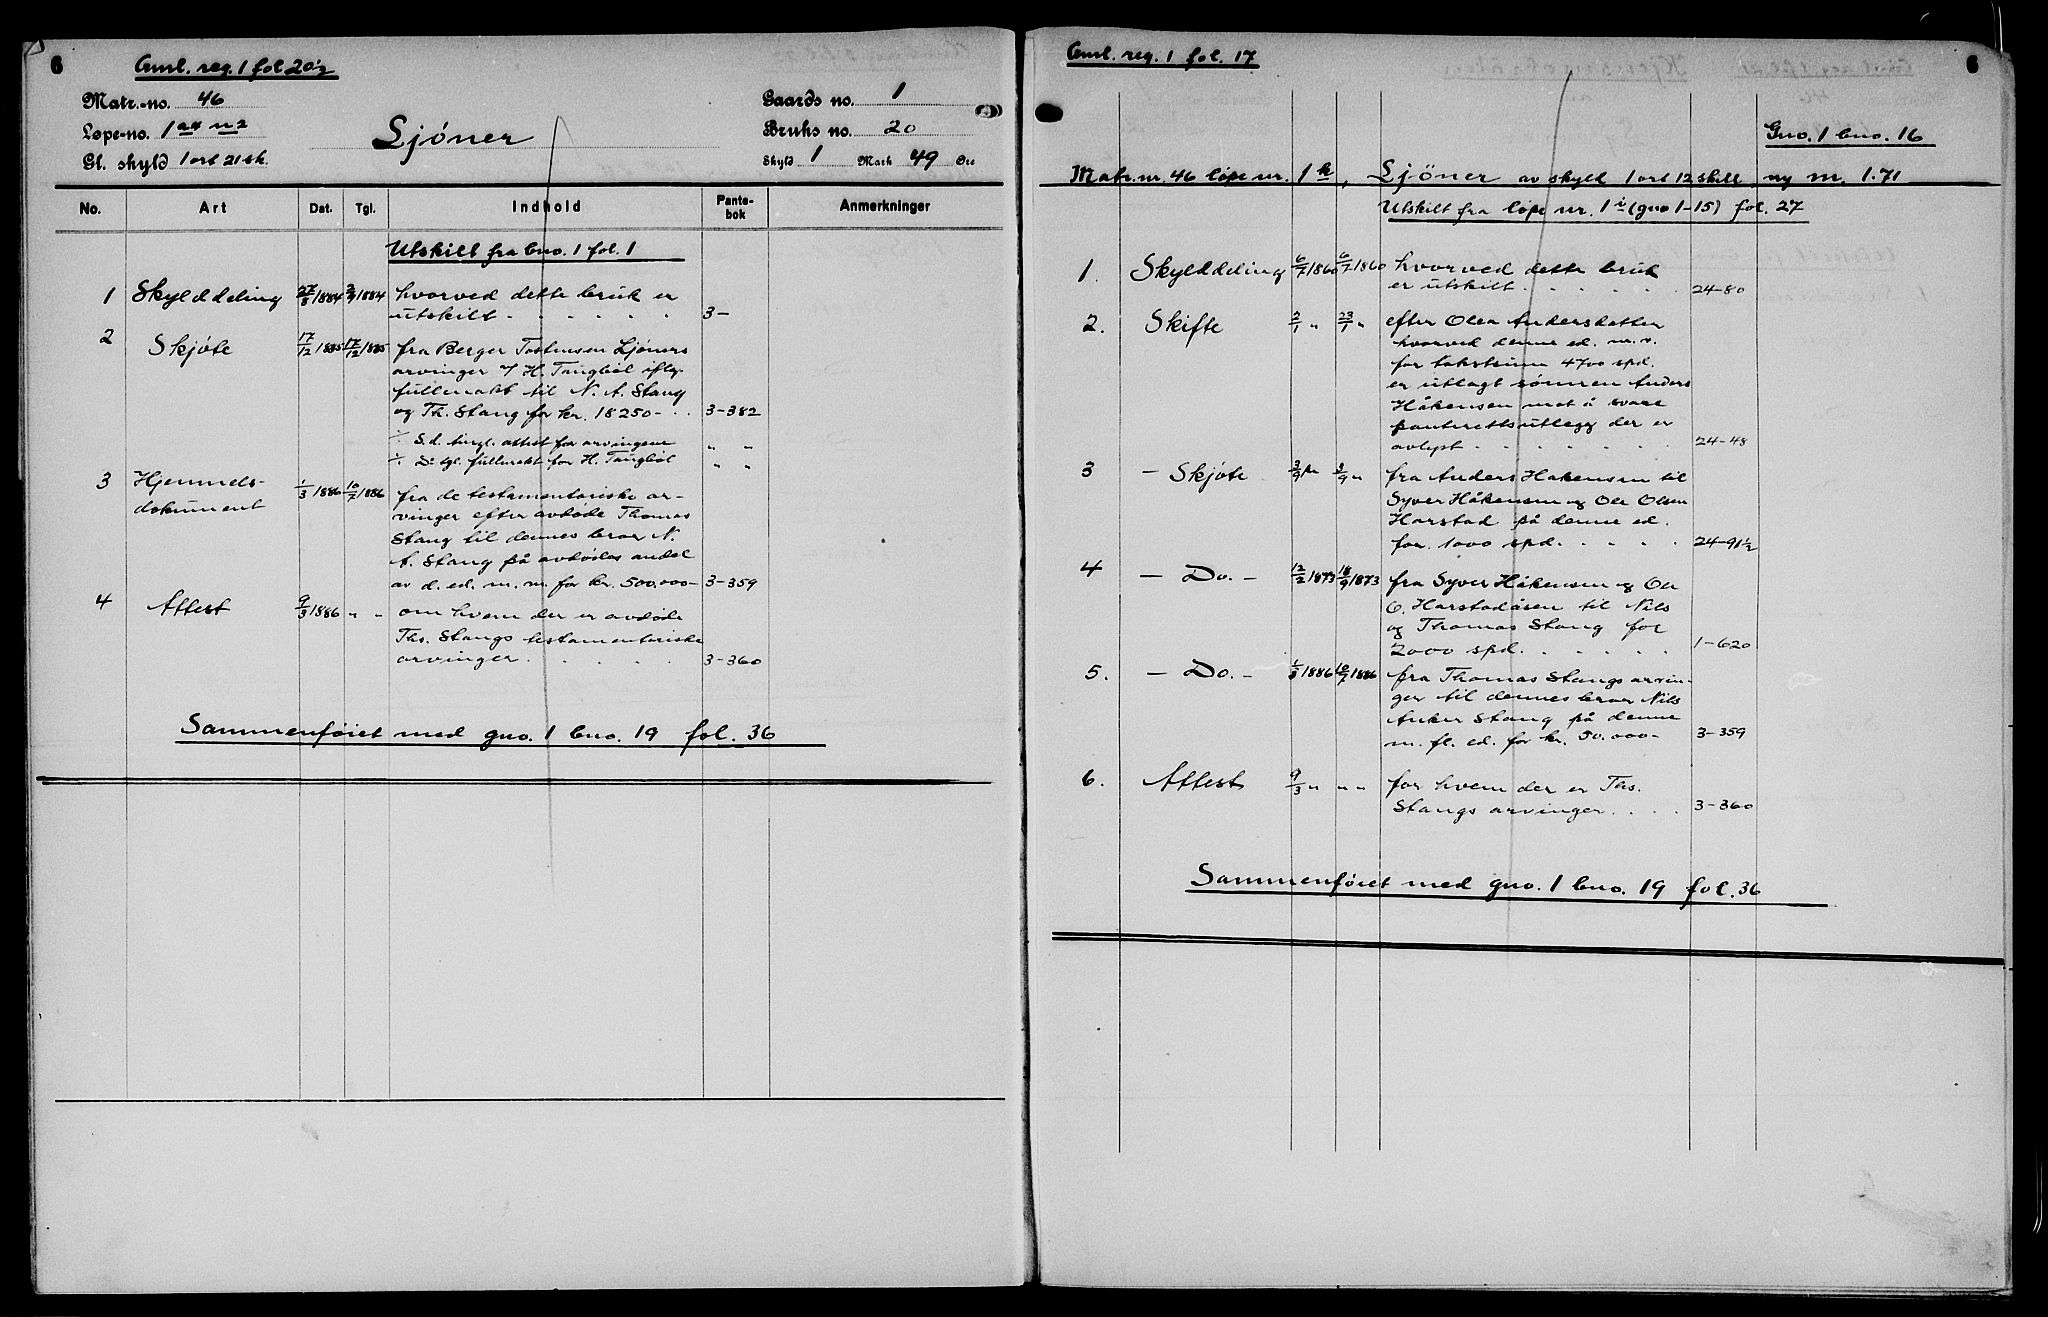 6
Aml. reg. 1 fol 20½
Matr.-no. 46
Løpe-no. 1
Gl. skyld 1 ort 21 sk.
Ljöner
Gaards no. 1
Bruks no. 20
Skyld 1 Mark 49 Øre
No. Art Dat. Tgl. Indhold Pante-bok Anmerkninger
Utskilt fra bno. 1 fol. 1
1 Skylddeling 27/8 1884 2/9 1884 hvorved dette bruk er
utskilt . . . . . . 3-
2 Skjöte 17/12 1885 17/12 1885 fra Berger Tostensen Ljöners
arvinger v/ H. Tangböl iflg.
fullmakt til N. A. Stang
og Th. Stang for kr. 18250- . . 3-382
S.d. tingl. attest for arvingene " "
D: tgl. fullmakt for H. Tangböl " "
3 Hjemmels-
dokument 1/3 1886 10/7 1886 fra de testamentariske ar-
vinger efter avdöde Thomas
Stang til dennes bror N.
A. Stang på avdödes andel
av d. ed. m. m. for kr. 500.000- 3-359
4 Attest 9/3 1886 " " om hvem der er avdöde
Ths. Stangs testamentariske
arvinger . . . . . 3-360
Sammenföiet med gno. 1 bno. 19 fol. 36
6
Aml. reg. 1 fol. 17
Gno. 1 bno. 16
Matr. nr. 46 löpe nr. 1 k, Ljöner av skyld 1 ort 12 skill, ny m. 1.71
Utskilt fra löpe nr. 1 i (gno 1-15) fol. 27
1. Skylddeling 6/7 1860 6/7 1860 hvorved dette bruk
er utskilt . . . . . . 24-80
2. Skifte 2/1 " 23/1 " efter Olea Andersdatter
hvorved denne ed. m. v.
for takstsum 4700 spd.
er utlagt sönnen Anders
Håkensen mot å svare
panterettsutlegg der er
avlyst . . . . . . . 24-48
3 - Skjöte 3/9 3/9 " fra Anders Hakensen til
Syver Håkensen og Ole Olsen
Harstad på denne ed.
for 1000 spd. . . . . . 24-91½
4 - Do. - 12/2 1873 18/9 1873 fra Syver Håkensen og Ole
O. Harstadåsen til Nils
og Thomas Stang for
7000 spd. . . . . . . 1-620
5. - Do. - 1/3 1886 10/7 1886 fra Thomas Stangs arvin-
ger til dennes bror Nils
Anker Stang på denne
m. fl. ed. for kr. 50.000- 3-359
6. Attest 9/3 " " " for hvem der er Ths.
Stangs arvinger . . . . 3-360
Sammenföiet med gno. 1 bno. 19 fol. 36